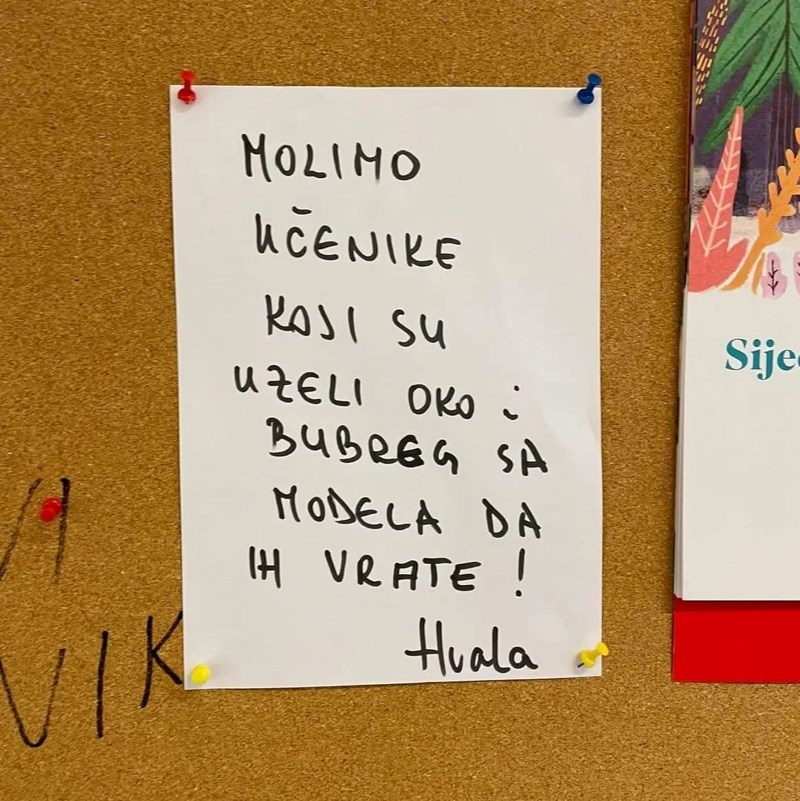 MOLIMO
UČENIKE
KOJI SU
UZELI OKO i
BUBREG SA
MODELA DA
IH VRATE!
Hvala
VIK
Sije